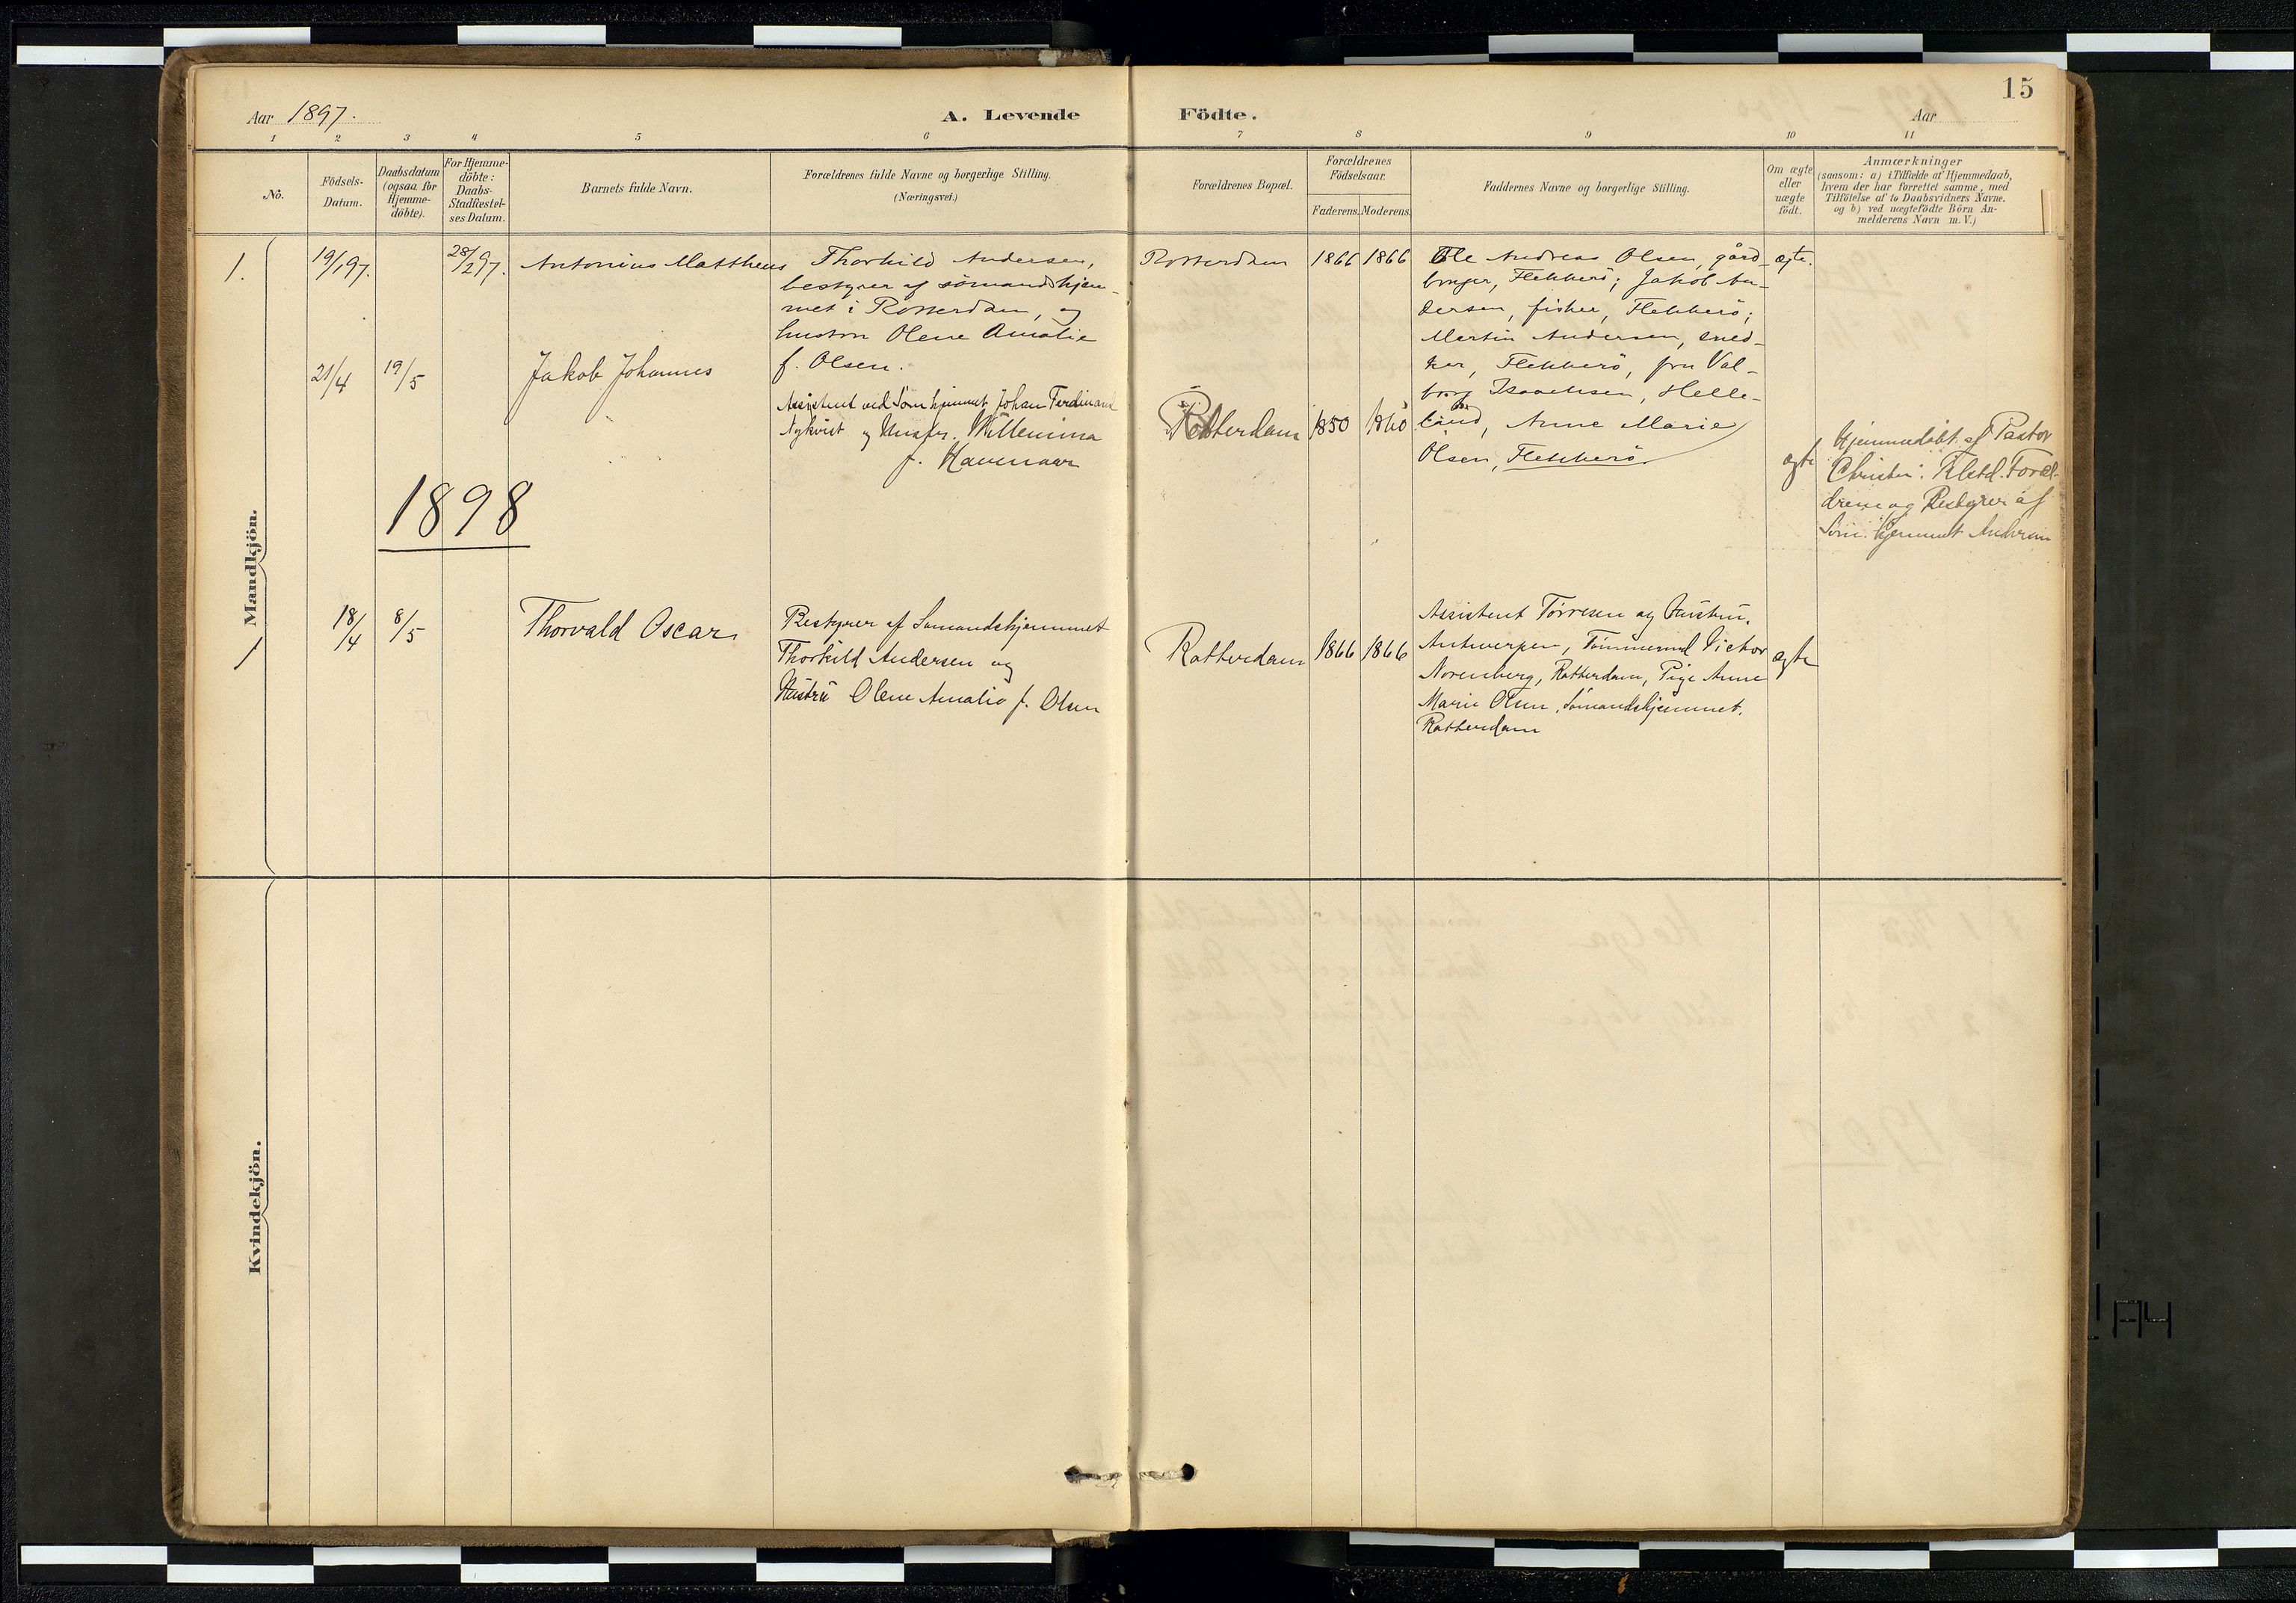 15
Aar 1897.
A. Levende Födte.
Aar
1 2 3 4 5 6 7 8 9 10 11
No.
Födsels-
Datum.
Daabsdatum
(ogsaa for
Hjemme-
döbte).
For Hjemme-
döbte:
Daabs-
Stadfæstel-
ses Datum.
Barnets fulde Navn.
Forældrenes fulde Navne og borgerlige Stilling.
(Næringsvei.)
Forældrenes Bopæl.
Forældrenes
Födselsaar.
Faderens. Moderens.
Faddernes Navne og borgerlige Stilling.
Om ægte
eller
uægte
födt.
Anmærkninger
(saasom: a) i Tilfælde af Hjemmedaab,
hvem der har forrettet samme, med
Tilföielse af to Daabsvidners Navne.
og b) ved uægtefödte Börn An-
melderens Navn m. V.)
Mandkjön.
1.
19/1 97.
28/2 97.
Antonius Mattheus
Thorkild Andersen,
bestyrer af sömandshjem-
met i Rotterdam, og
hustru Olene Amalie
f. Olsen.
Rotterdam
1866 1866
Ole Andreas Olsen, gård-
bruger, Flekkerö; Jakob An-
dersen, fisker, Flekkerö;
Martin Andersen, sned-
ker, Flekkerö, fru Val-
borg Isaachsen, Helle-
land, Anne Marie
Olsen, Flekkerö.
ægte.
21/4
19/5
Jakob Johannes
Assistent ved Sömhjemmet Johan Ferdinand
Nykvist og Hustr. Willemina
f. Havenaar
Rotterdam
1850 1860
ægte
Hjemmedöbt af Pastor
Foræl-
drene og Bestyrer af
Söm. hjemmet Andersen
1898
18/4
8/5
Thorvald Oscar
Bestyrer af Sömandshjemmet
Thorkild Andersen og
Hustru Olene Amalie f. Olsen
Rotterdam
1866 1866
Assistent Törresen og Hustru,
Antwerpen, Tömmermd Victor
Norenberg, Rotterdam, Pige Anne
Marie Olsen, Sömandshjemmet,
Rotterdam
ægte
Kvindekjön.